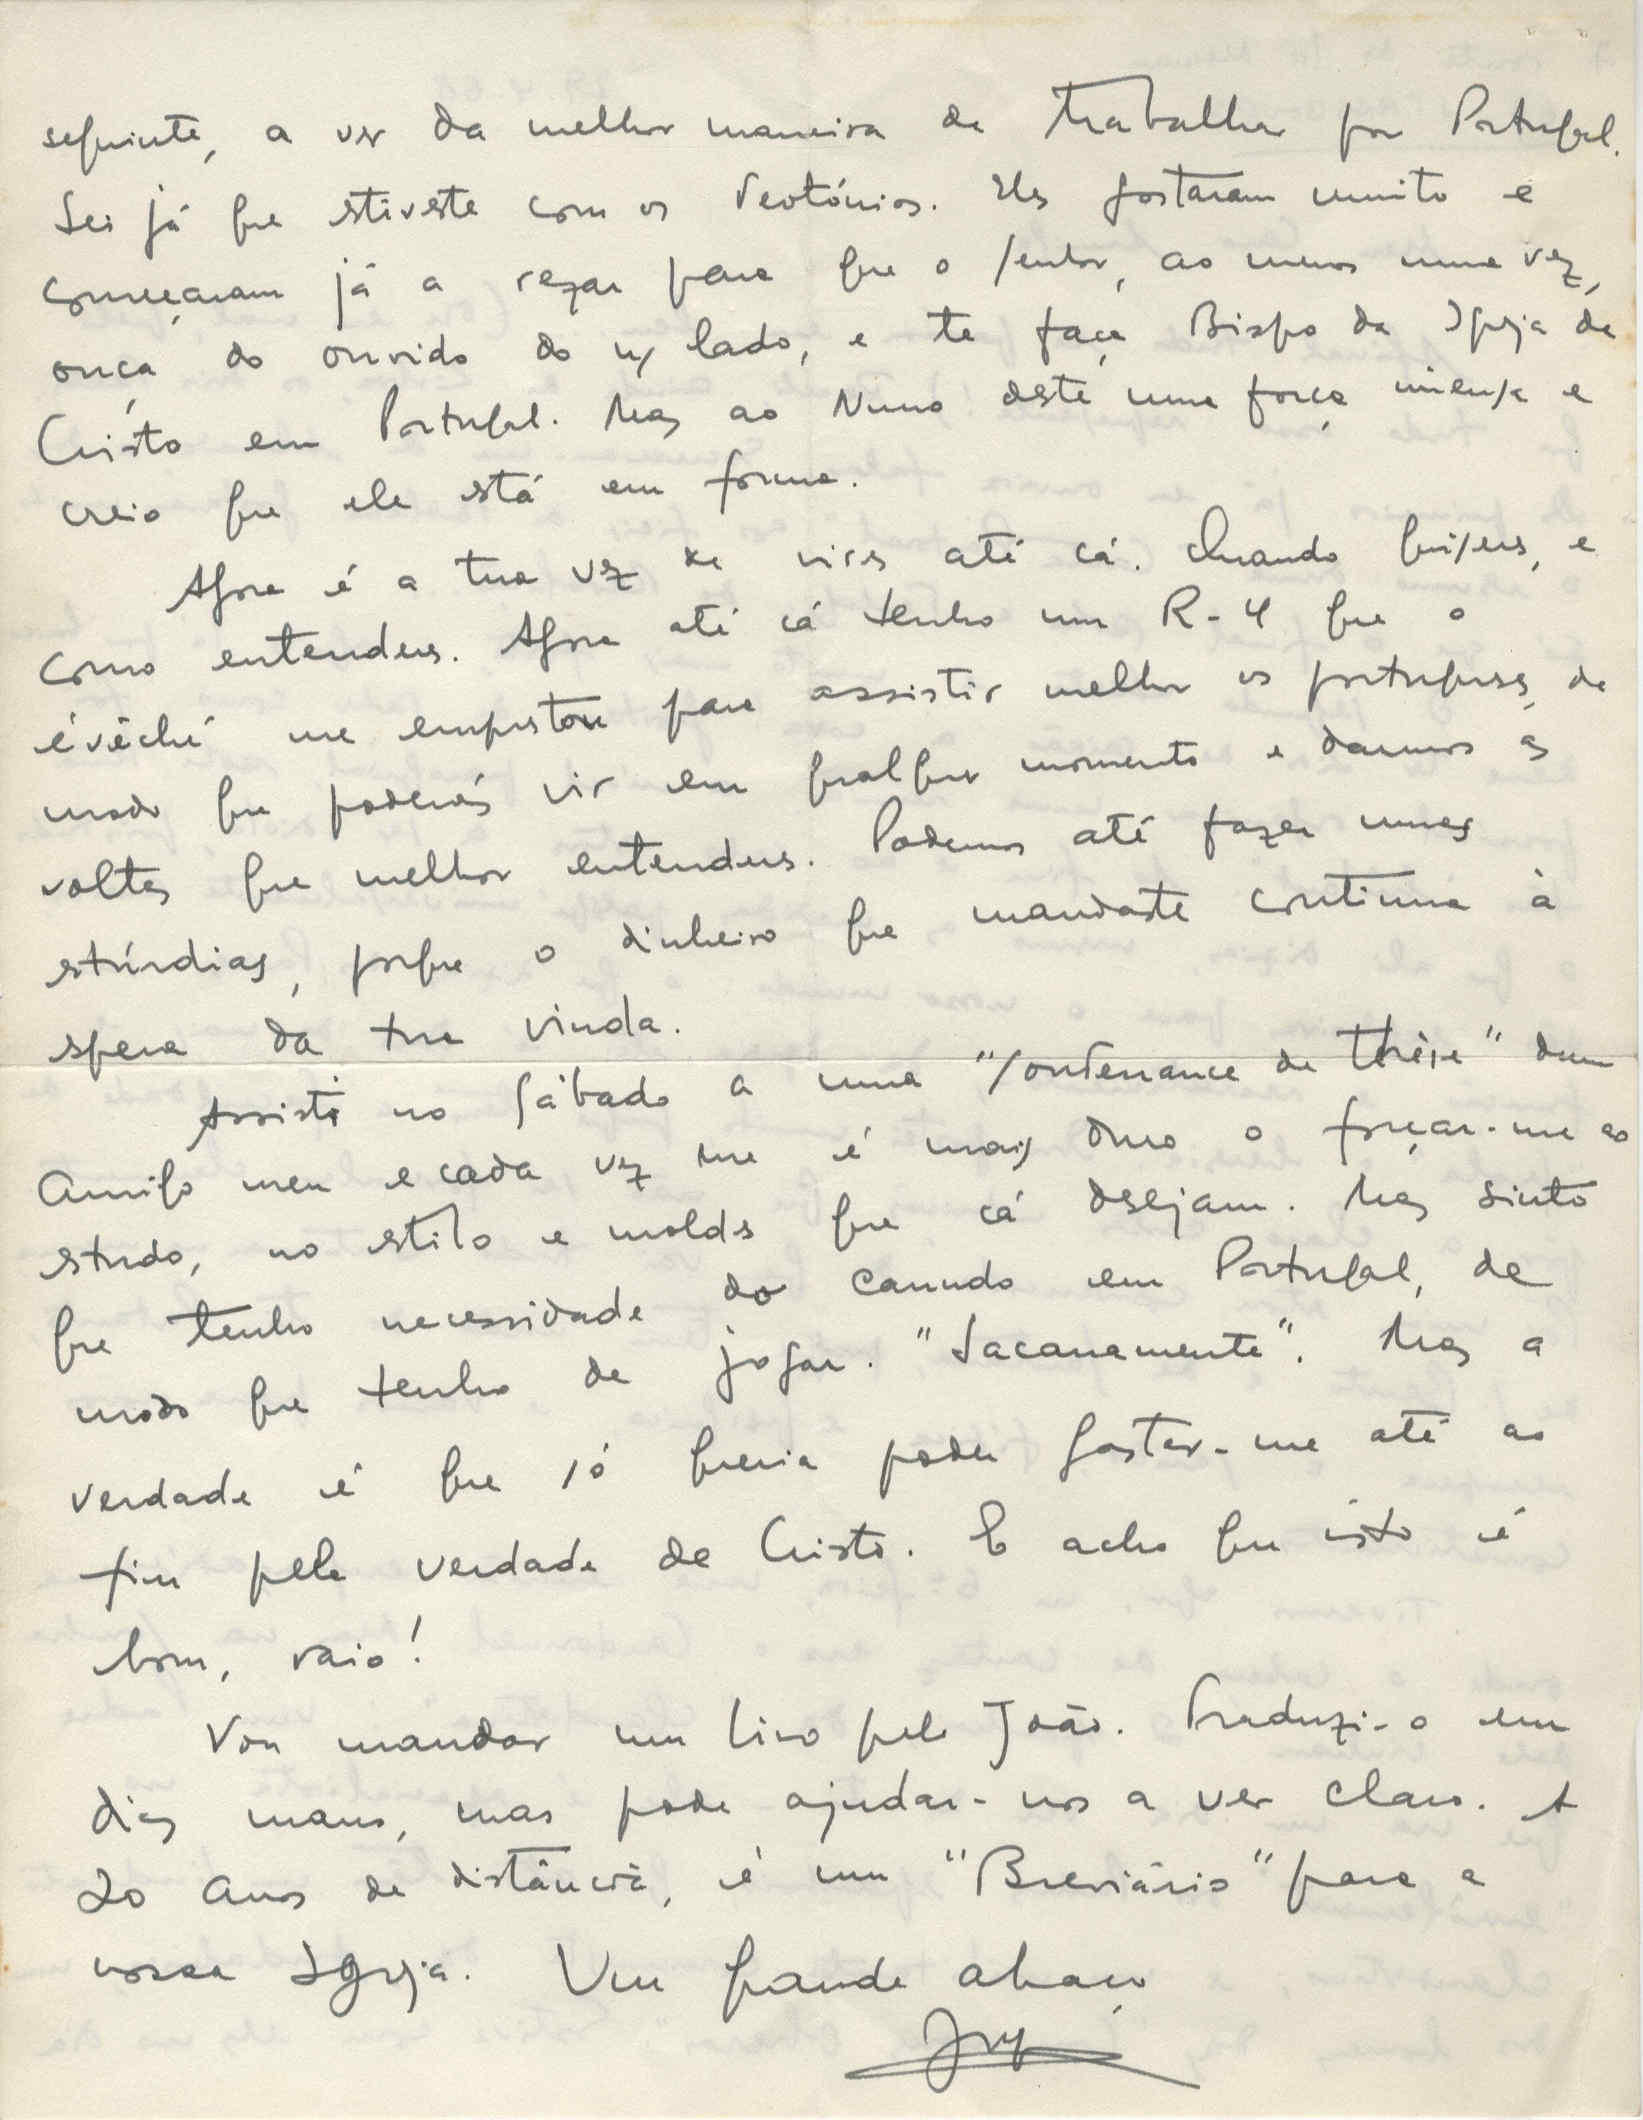 seguinte, a ver da melhor maneira de trabalhar por Portugal.
Sei já que estiveste com os Teotónios. Eles gostaram muito e
começaram já a rezar para que o Senhor, ao menos uma vez,
ouça do ouvido do n/ lado, e te faça Bispo da Igreja de
Cristo em Portugal. Mas ao Nuno deste uma força imensa e
creio que ele está em forma.
Agora é a tua vez de vires até cá. Quando quiseres, e
como entenderes. Agora até cá tenho um R-4 que o
évêché me emprestou para assistir melhor os portugueses, de
modo que poderás vir em qualquer momento e darmos as
voltas que melhor entenderes. Podemos até fazer umas
estúrdias, porque o dinheiro que mandaste continua à
espera da tua vinda.
Assisti no Sábado a uma "soutenance de thèse" dum
amigo meu e cada vez me é mais duro o forçar-me ao
estudo, no estilo e moldes que cá desejam. Mas sinto
que tenho necessidade do canudo em Portugal, de
modo que tenho de jogar. "Sacanamente". Mas a
verdade é que só queria poder gastar-me até ao
fim pela verdade de Cristo. E acho que isto é
bom, raio!
Vou mandar um livro pelo João. Traduzi-o em
dias maus, mas pode ajudar-nos a ver claro. A
20 anos de distância, é um "Breviário" para a
nossa Igreja. Um grande abraço